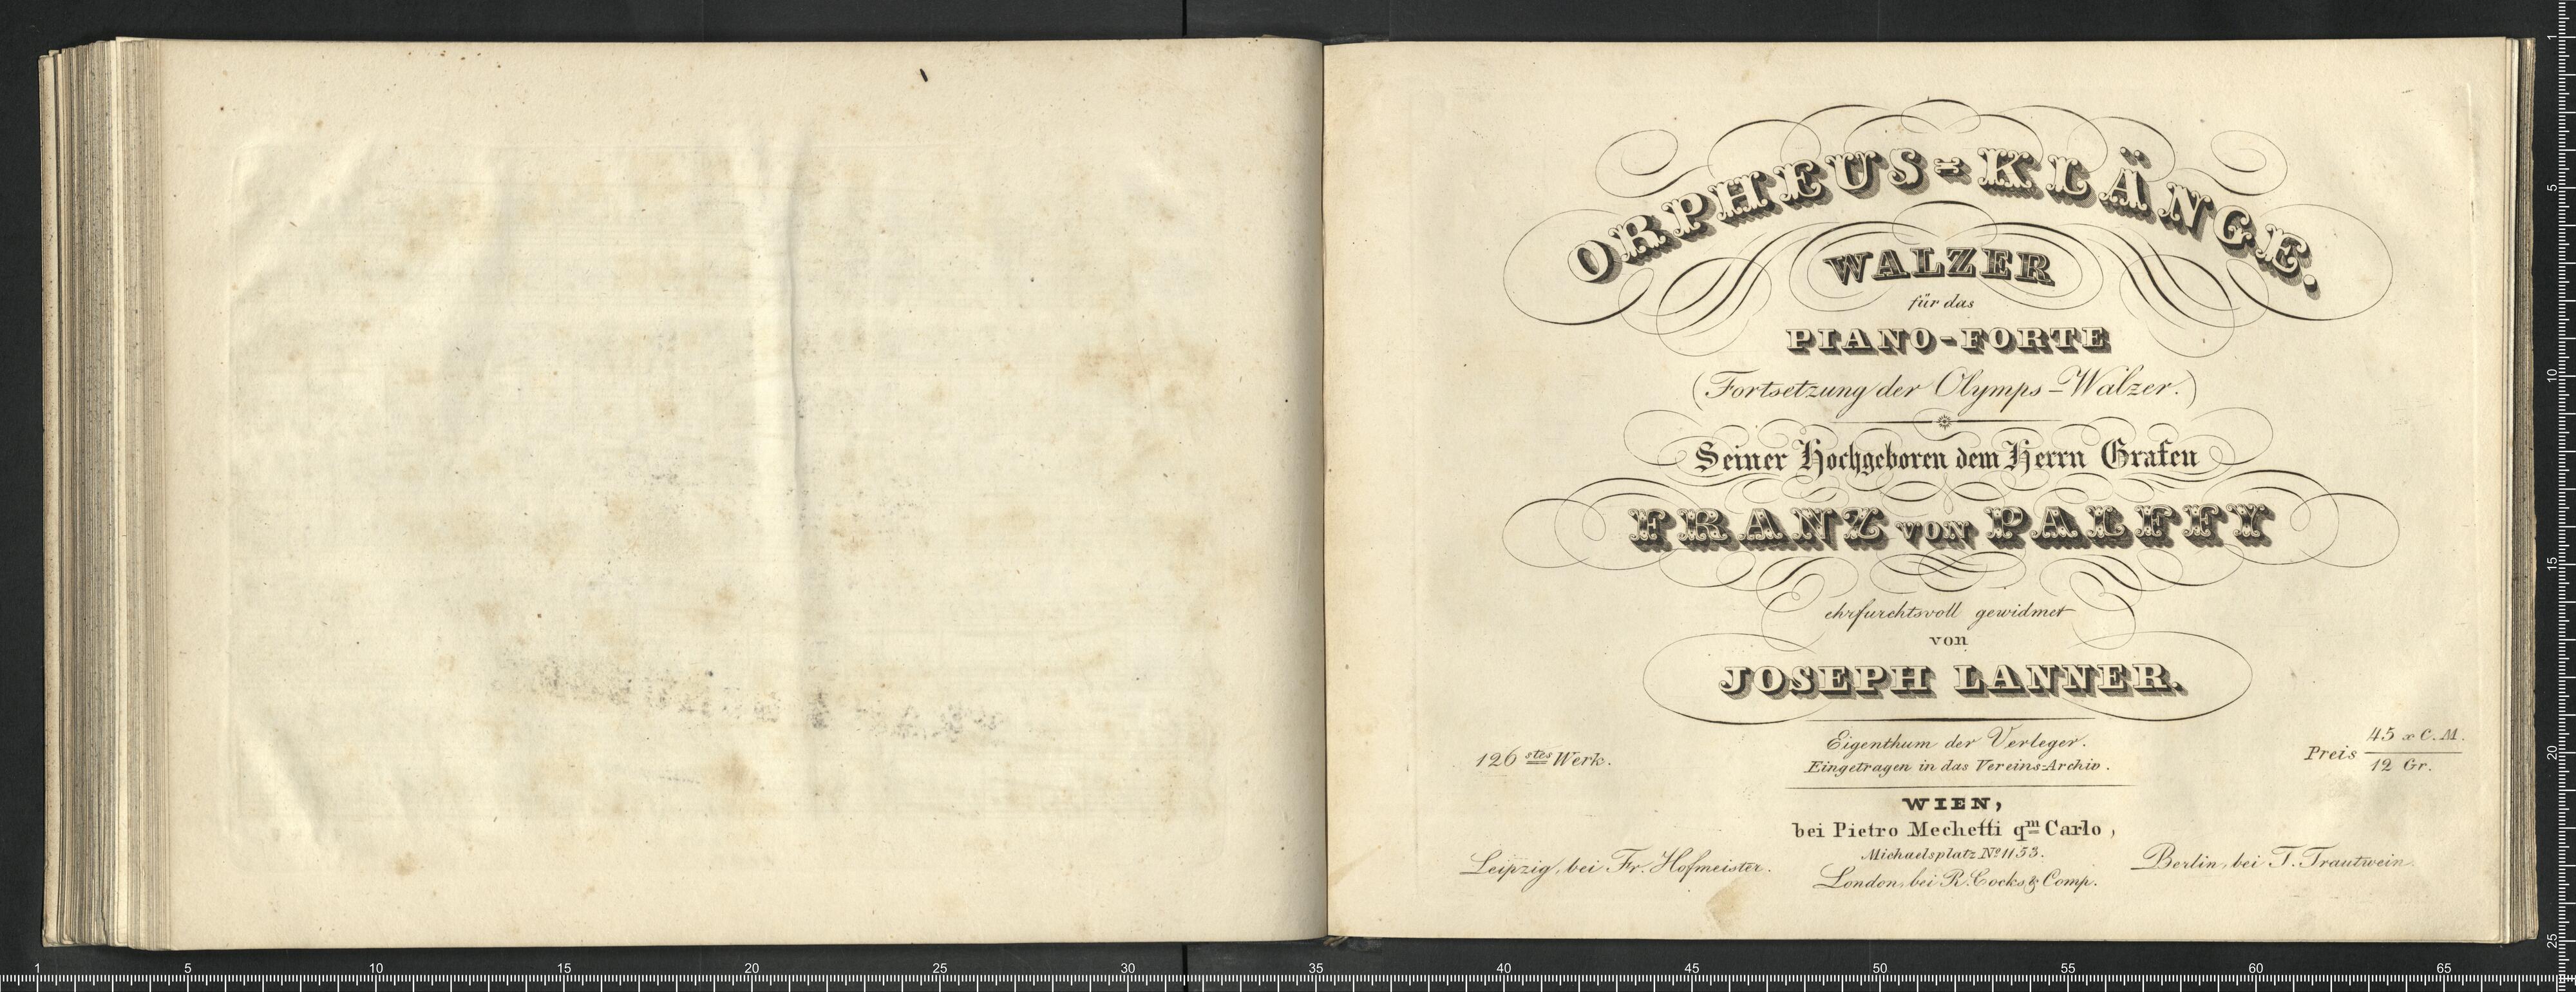 ORPHEUS=KLÄNGE.
WALZER
für das
PIANO-FORTE
(Fortsetzung der Olymps-Walzer.)
Seiner Hochgeboren dem Herrn Grafen
FRANZ VON PALFFY
ehrfurchtsvoll gewidmet
von
JOSEPH LANNER.
126 stes Werk.
Eigenthum der Verleger.
Eingetragen in das Vereins-Archiv.
Preis 45 x C.M.
12 Gr.
WIEN,
bei Pietro Mechetti qm Carlo,
Michaelsplatz No 1153.
Leipzig, bei Fr. Hofmeister.
London, bei R. Cocks & Comp.
Berlin, bei T. Trautwein.
1 5 10 15 20 25 30 35 40 45 50 55 60 65
1 5 10 15 20 25